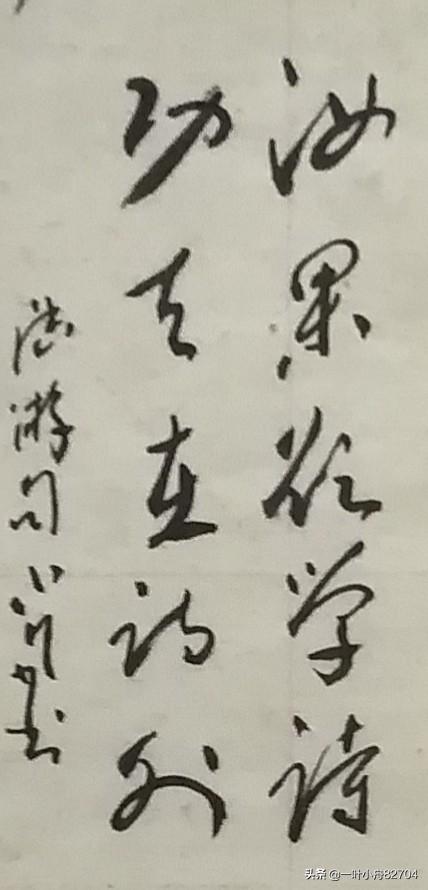 汝果欲学诗
功夫在诗外
陆游句 小舟书
头条 @一叶小舟82704